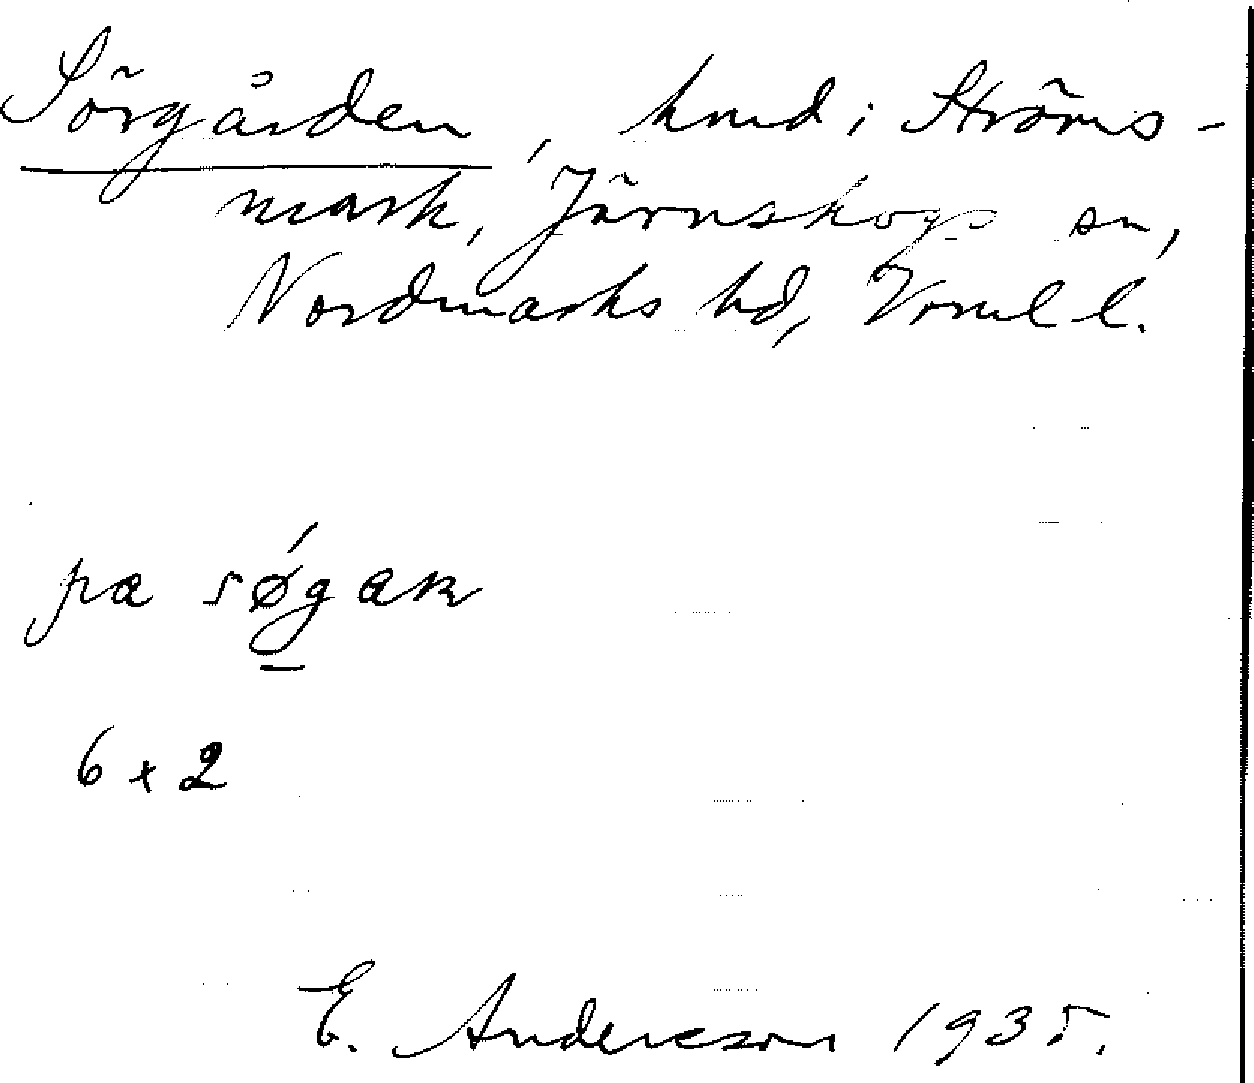 Sörgården, hmd i Ströms-
mark, Järnskogs sn,
Nordmarks hd, Vrml l.
pa søgaɴ
6 + 2
E. Anderson 1935.